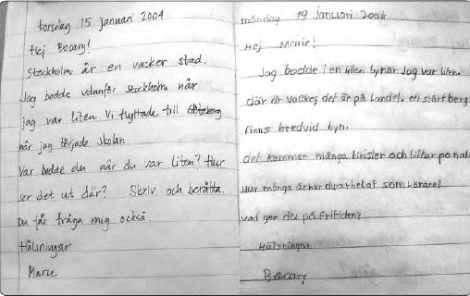 torsdag 15 januari 2004
Hej Bocary!
Stockholm är en vacker stad.
Jag bodde utanför Stockholm när
jag var liten. Vi flyttade till Göteborg
när jag började skolan.
Var bodde du när du var liten? Hur
ser det ut där? Skriv och berätta.
Du får fråga mig också.
Hälsningar
Marie
måndag 19 januari 2004
Hej Marie!
Jag bodde i en liten by när jag var liten.
där är vacker det är på landet. ett stort berg
finns bredvid byn.
det kommer många turister och tittar på
Hur många år har du arbetat som lärare?
vad gör du på fritiden?
Hälsningar
Bocary